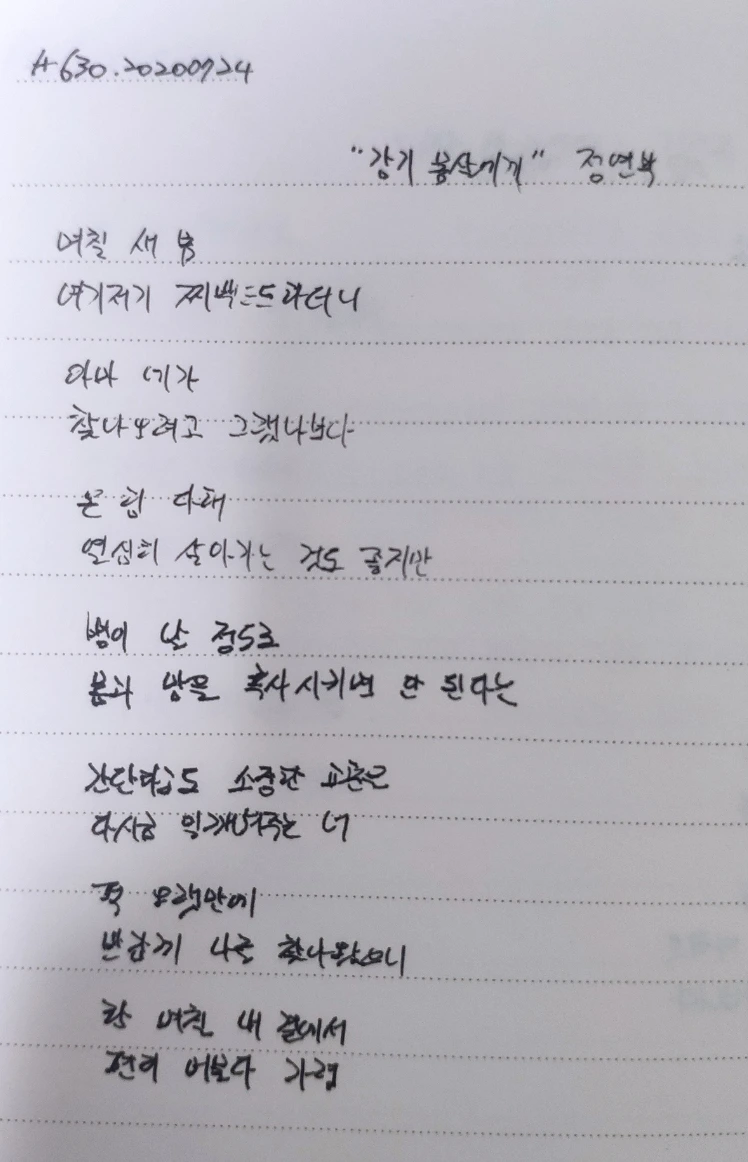 A630.20200724
"감기 몸살에게" 정연복
며칠 새 몸
여기저기 찌뿌드드하더니
아마 네가
찾아오려고 그랬나보다
온 힘 다해
열심히 살아가는 것도 좋지만
병이 날 정도로
몸과 맘을 혹사시키면 안 된다는
간단하고도 소중한 교훈을
다시금 일깨워주는 너
퍽 오랜만에
반갑게 나를 찾아왔으니
한 며칠 내 곁에서
편히 머물다 가렴